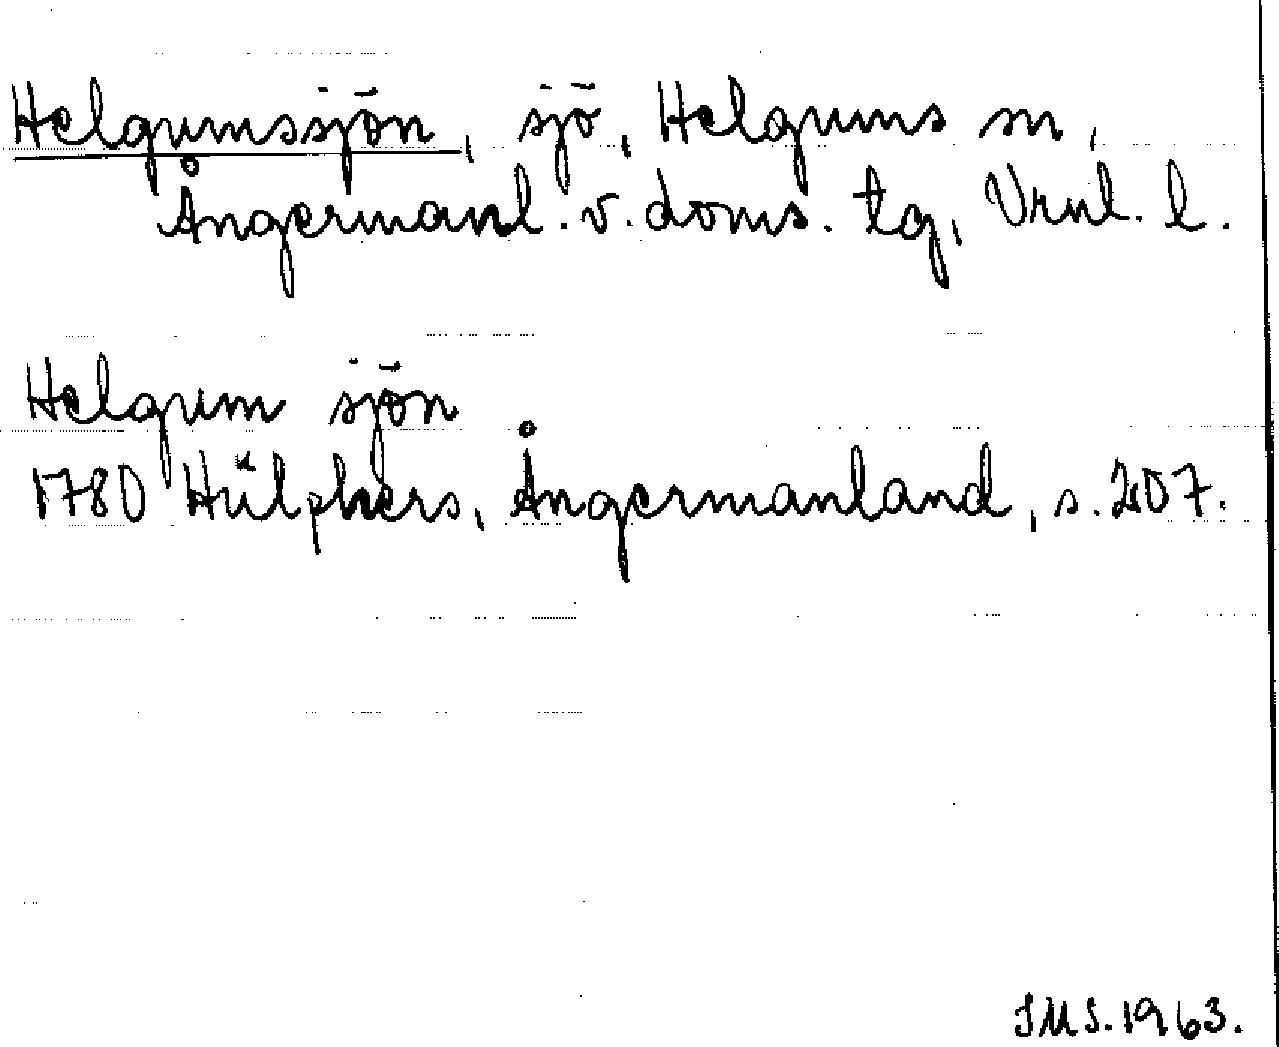 Helgumssjön, sjö, Helgums sn,
Ångermanl. v. doms. tg, Vrnl. l.
Helgum sjön
1780 Hülphers, Ångermanland, s. 207.
SMS. 1963.